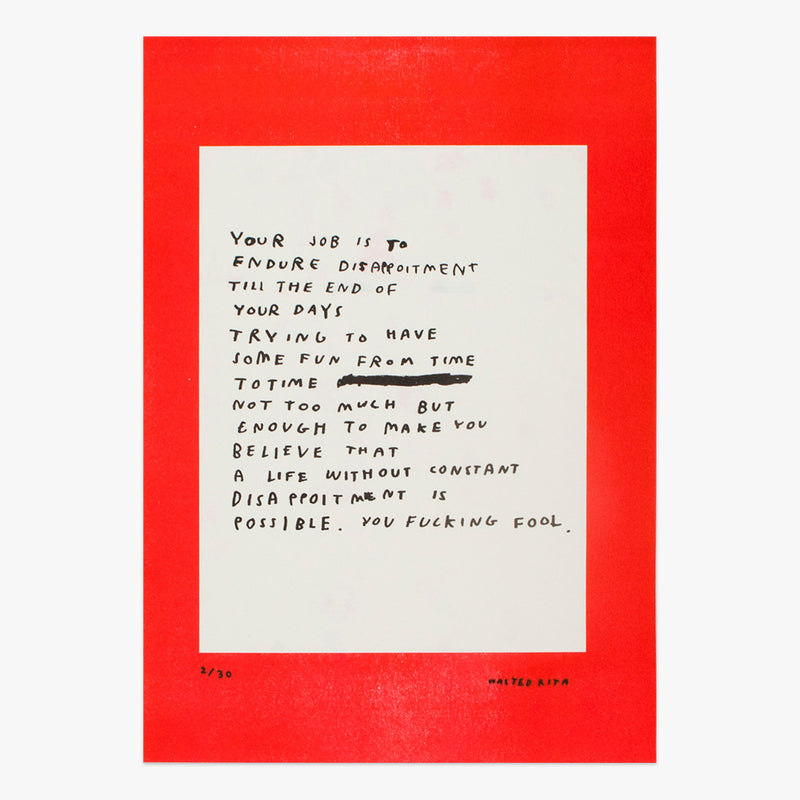 YOUR JOB IS TO
ENDURE DISAPPOITMENT
TILL THE END OF
YOUR DAYS
TRYING TO HAVE
SOME FUN FROM TIME
TO TIME
NOT TOO MUCH BUT
ENOUGH TO MAKE YOU
BELIEVE THAT
A LIFE WITHOUT CONSTANT
DISAPPOITMENT IS
POSSIBLE. YOU FUCKING FOOL.
2/30
WASTED RITA